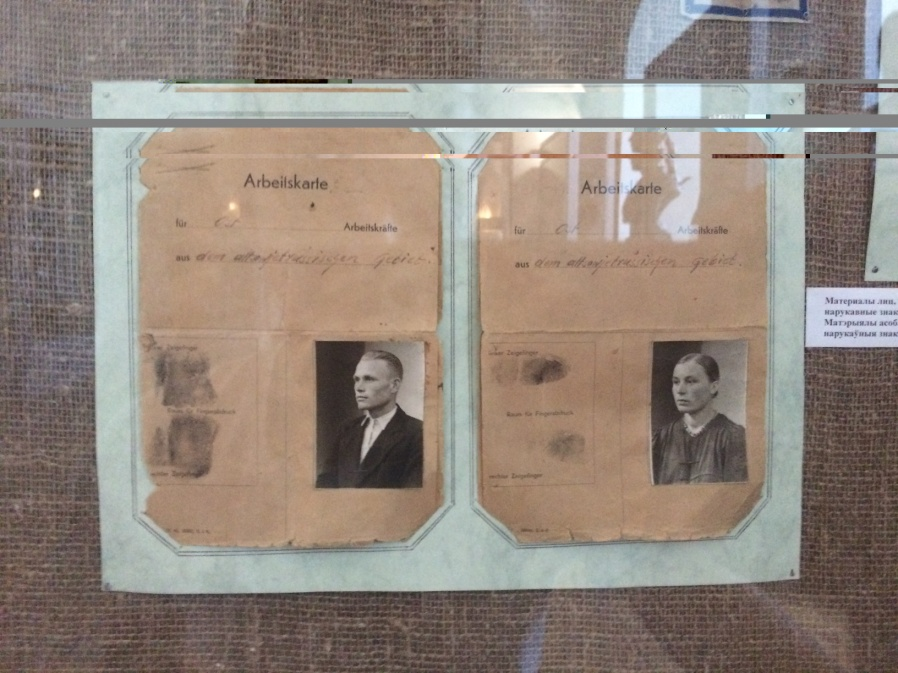 Arbeitskarte
für Ost Arbeitskräfte
aus dem altsowjetrussischen Gebiet.
Raum für Fingerabdruck
rechter Zeigefinger
Arbeitskarte
für Ost Arbeitskräfte
aus dem altsowjetrussischen Gebiet.
linker Zeigefinger
Raum für Fingerabdruck
rechter Zeigefinger
Материалы лиц,
нарукавные знак
Матэрыялы асоб
нарукаўныя знак